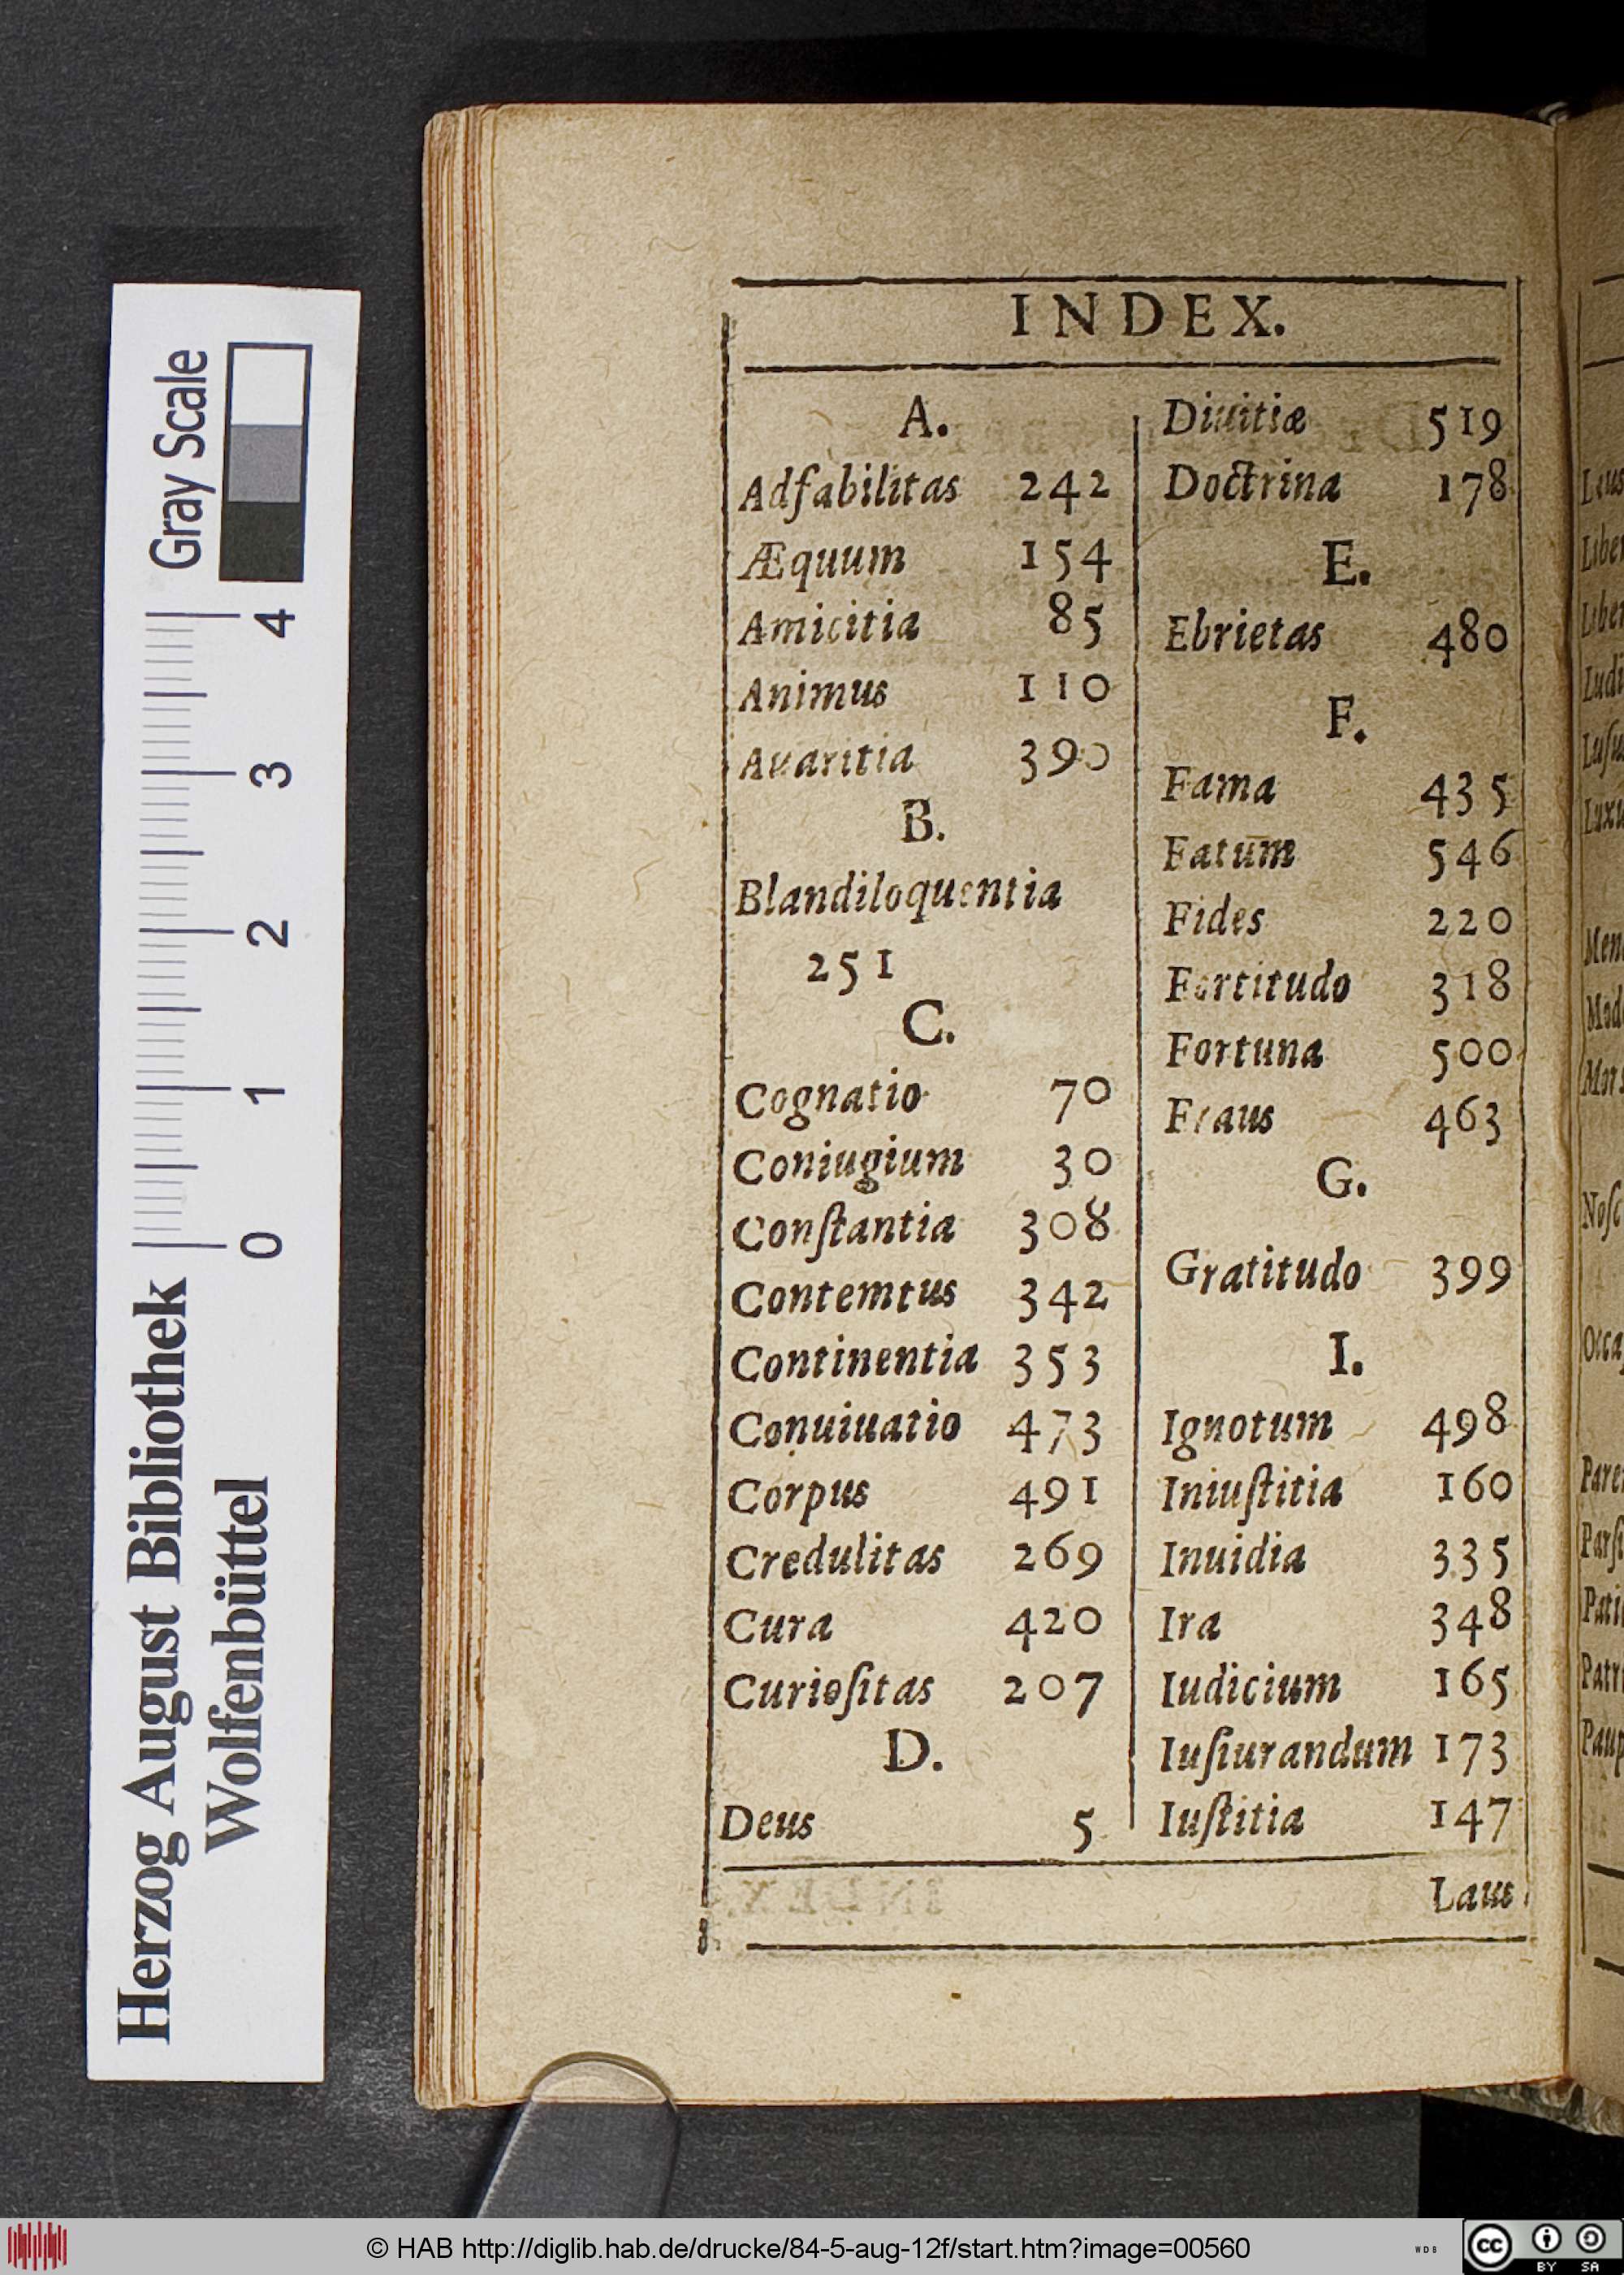 INDEX.
A.
Adfabilitas 242
Æquum 154
Amicitia 85
Animus 110
Auaritia 390
B.
Blandiloquentia
251
C.
Cognatio 70
Coniugium 30
Conſtantia 308
Contemtus 342
Continentia 353
Conuiuatio 473
Corpus 491
Credulitas 269
Cura 420
Curioſitas 207
D.
Deus 5
Diuitiæ 519
Doctrina 178
E.
Ebrietas 480
F.
Fama 435
Fatum 546
Fides 220
Fortitudo 318
Fortuna 500
Fraus 463
G.
Gratitudo 399
I.
Ignotum 498
Iniuſtitia 160
Inuidia 335
Ira 348
Iudicium 165
Iuſiurandum 173
Iuſtitia 147
Laus
Gray Scale
4
3
2
1
0
Herzog August Bibliothek
Wolfenbüttel
© HAB http://diglib.hab.de/drucke/84-5-aug-12f/start.htm?image=00560
WDB
CC BY SA